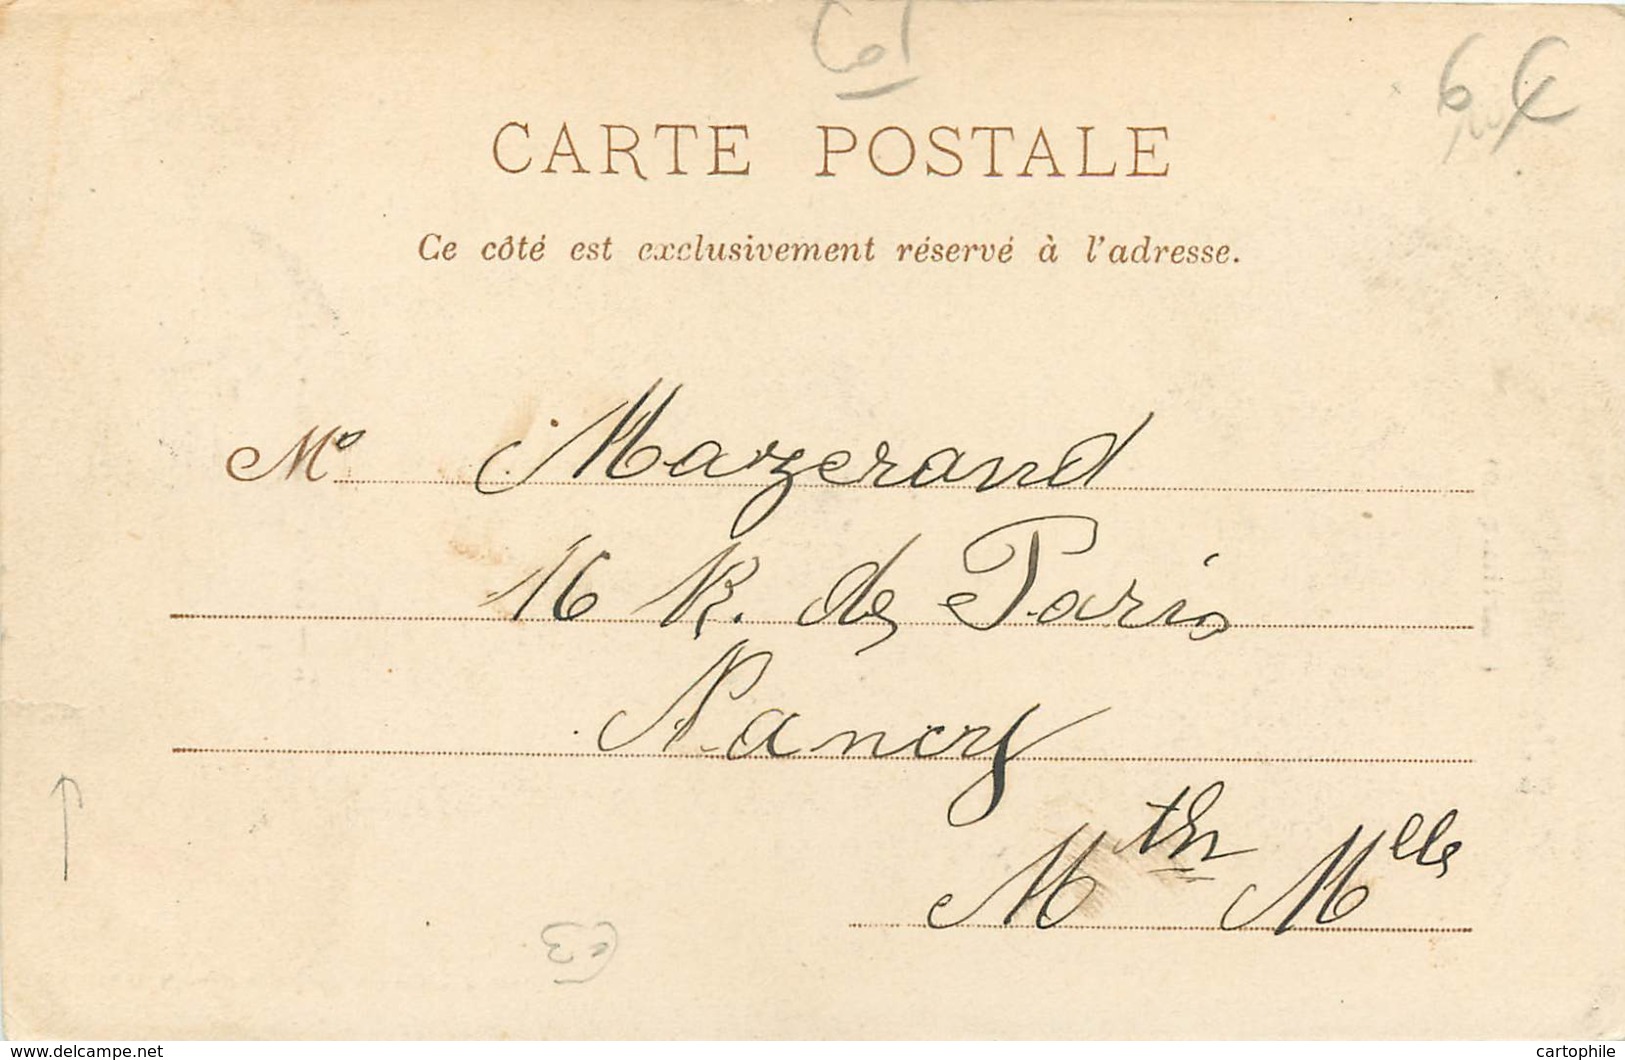 Col
6 €
CARTE POSTALE
Ce côté est exclusivement réservé à l'adresse.
Me Mazerand
16 R. de Paris
Nancy
Mth Mlle
www.delcampe.net
cartophile